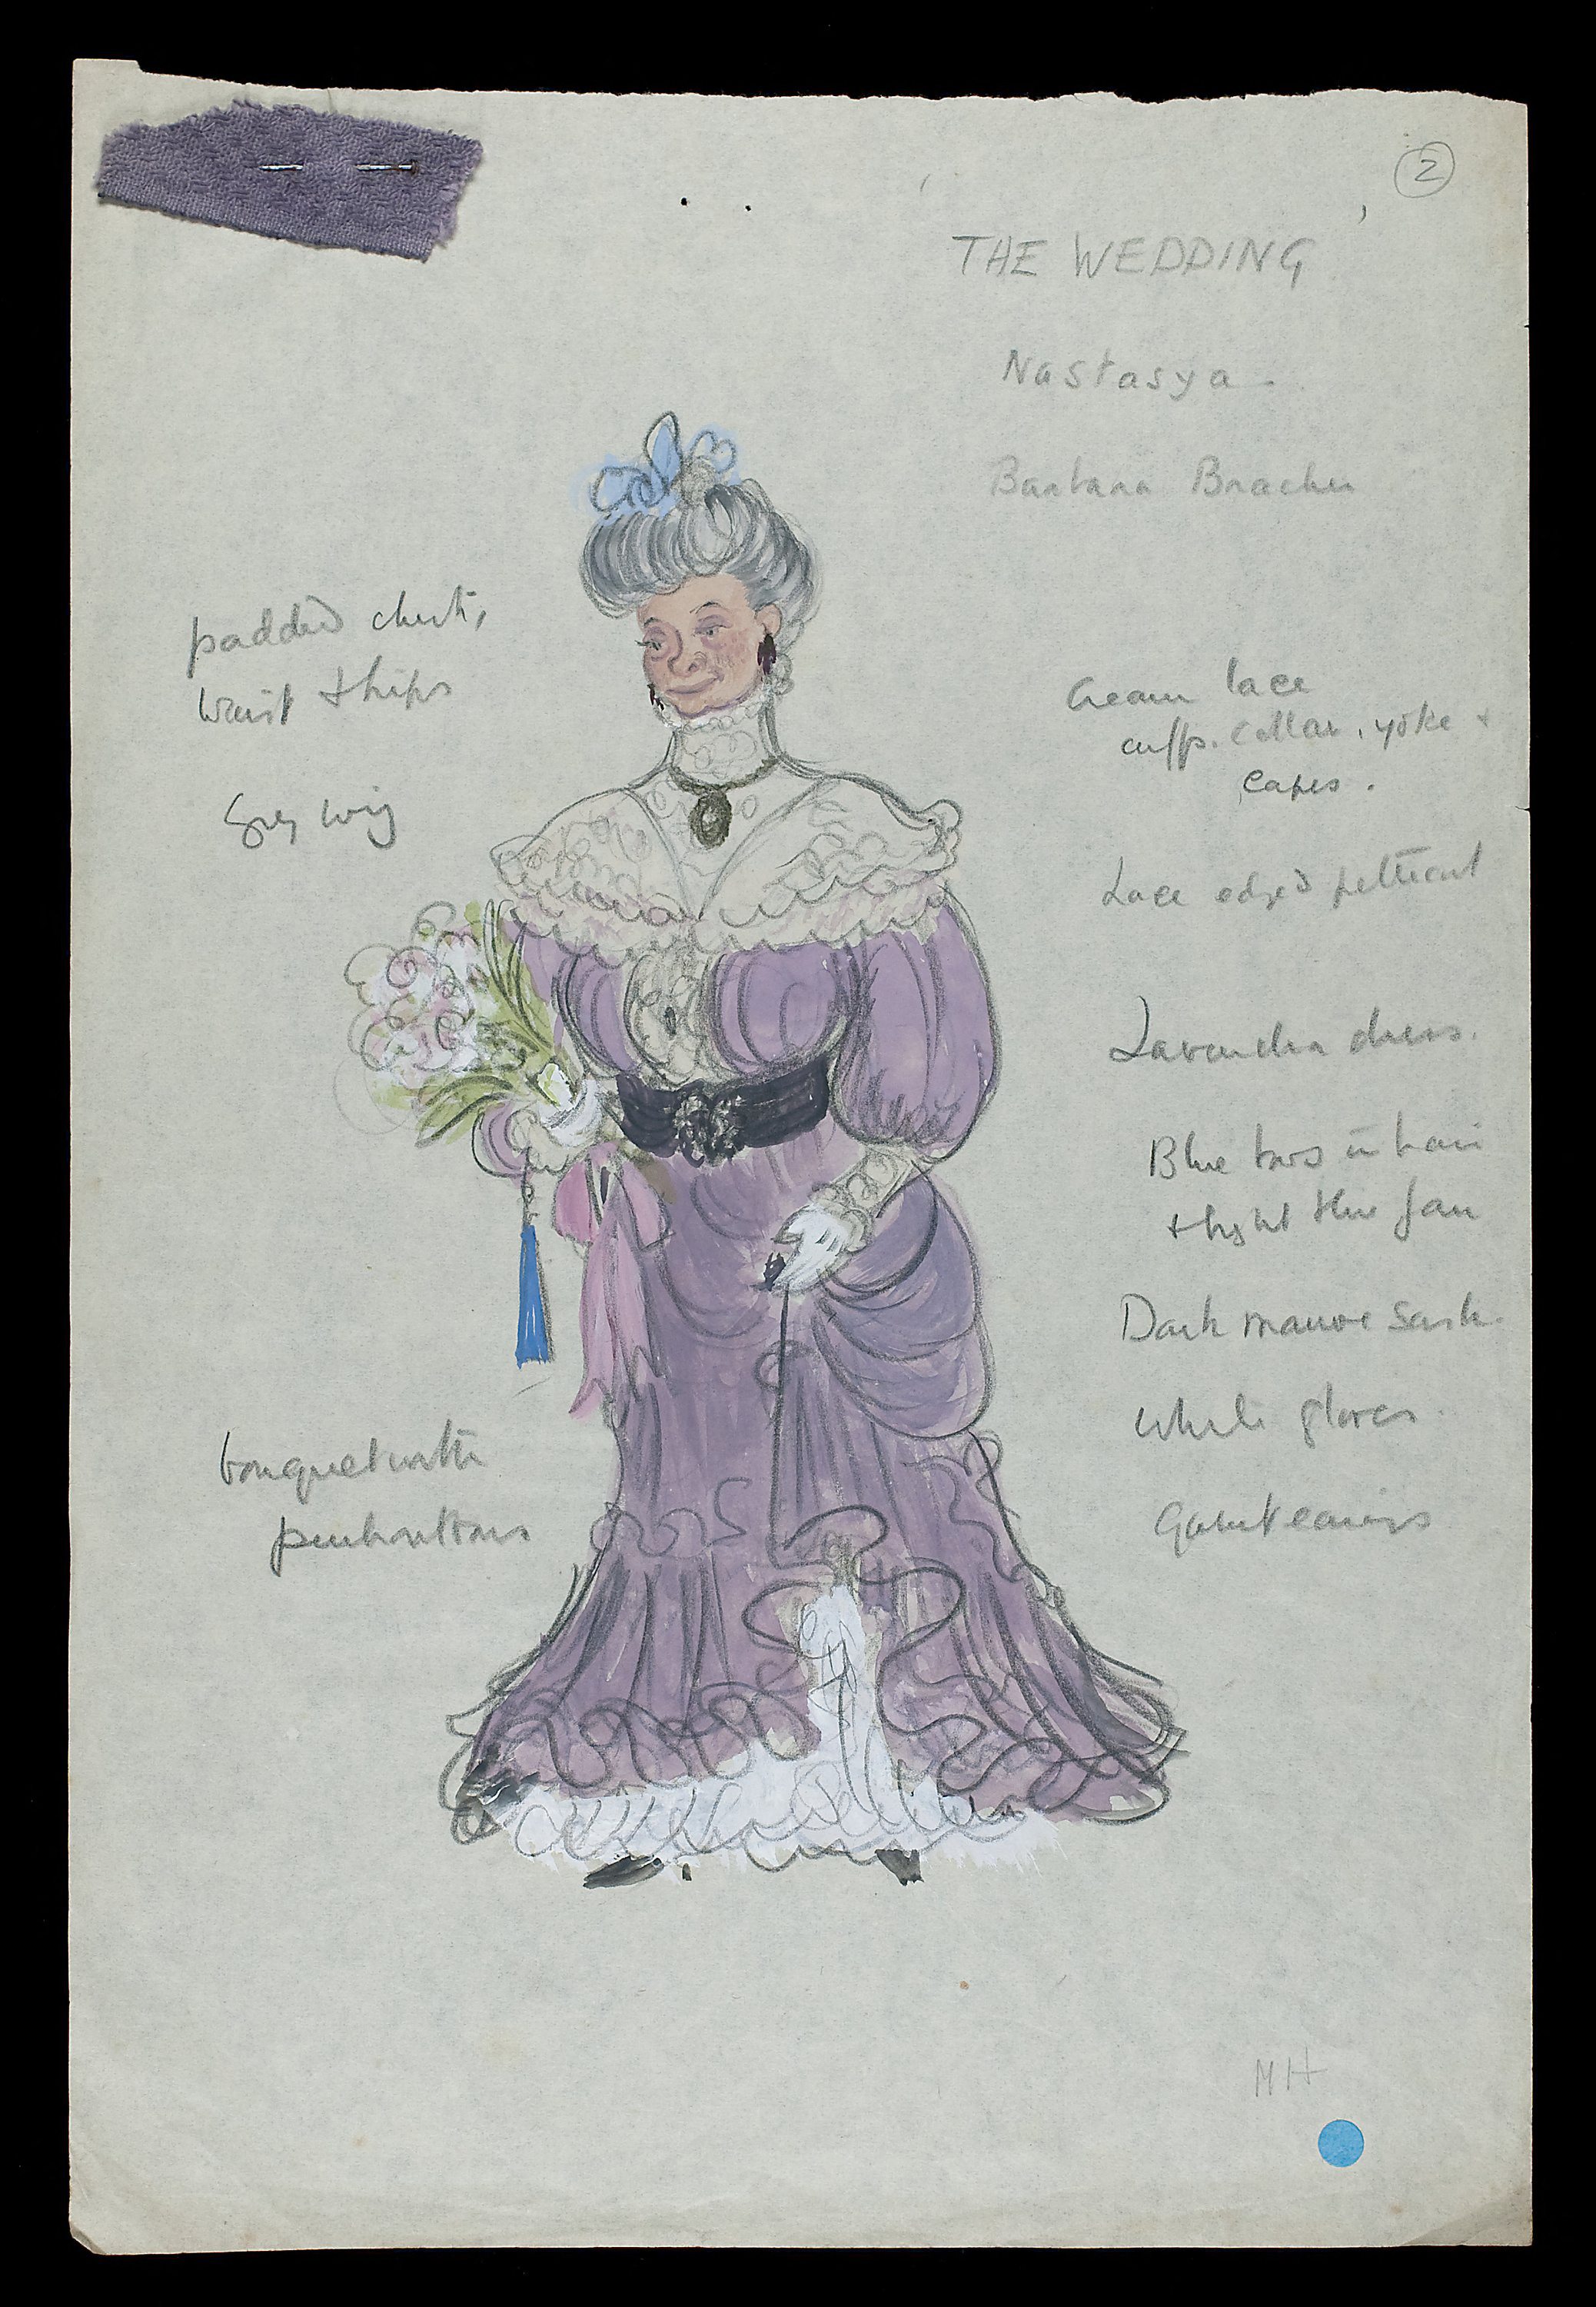 2
THE WEDDING
Nastasya.
Barbara
padded chest,
waist + hips
Grey wig
Cream lace
cuffs. collar, yoke +
capes.
Lace edged petticoat
Lavender dress.
Blue bows in hair
+ light blue fan
Dark mauve sash.
white gloves.
Garnet earrings
bouquet with
pink
MH